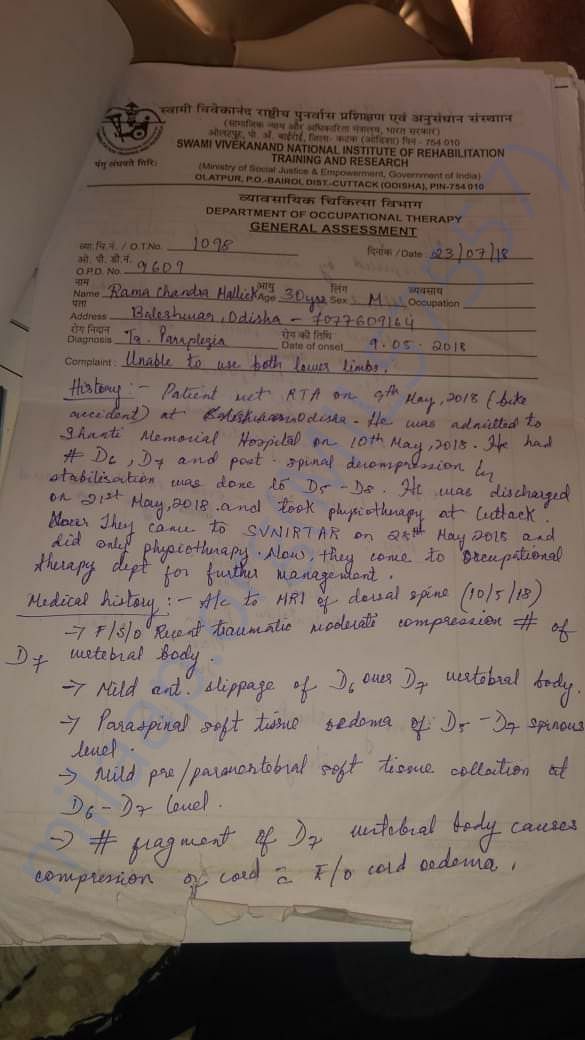 स्वामी विवेकानंद राष्ट्रीय पुनर्वास प्रशिक्षण एवं अनुसंधान संस्थान
(सामाजिक न्याय और अधिकारिता मंत्रालय, भारत सरकार)
ओलटपुर, पो. ऑ. बाईरोई, जिला- कटक (ओडिशा) पिन - 754 010
SWAMI VIVEKANAND NATIONAL INSTITUTE OF REHABILITATION
TRAINING AND RESEARCH
(Ministry of Social Justice & Empowerment, Government of India)
OLATPUR, P.O.-BAIROI, DIST.-CUTTACK (ODISHA), PIN-754 010
पंगु लंघयते गिरिः
व्यावसायिक चिकित्सा विभाग
DEPARTMENT OF OCCUPATIONAL THERAPY
GENERAL ASSESSMENT
व्या.चि.नं. / O.T.No. 1098 दिनांक / Date : 23/07/18
ओ. पी. डी.नं.
O.P.D. No. 9609
नाम आयु लिंग व्यवसाय
Name Rama Chandra Mallick Age 30yrs Sex M Occupation
पता
Address Baleshwar, Odisha - 7077609164
रोग निदान रोग की तिथि
Diagnosis Tr. Paraplegia Date of onset 9.05.2018
Complaint : Unable to use both lower limbs.
History :- Patient met RTA on 9th May, 2018 (bike
accident) at Odisha. He was admitted to
Shanti Memorial Hospital on 10th May, 2018. He had
# D6, D7 and post. spinal decompression &
stabilisation was done to D5-D8. He was discharged
on 21st May, 2018. and took physiotherapy at Cuttack.
They came to SVNIRTAR on May 2018 and
did only physiotherapy. Now, they come to occupational
therapy dept for further management.
Medical history :- A/c to MRI of dorsal spine (10/5/18)
→ F/S/O Recent traumatic moderate compression # of
D7 vertebral body
→ Mild ant. slippage of D6 over D7 vertebral body.
→ Paraspinal soft tissue oedema of D5-D7 spinous
level.
→ Mild pre/paravertebral soft tissue collation at
D6-D7 level.
→ # fragment of D7 vertebral body causes
compression of cord c̄ F/O cord oedema.